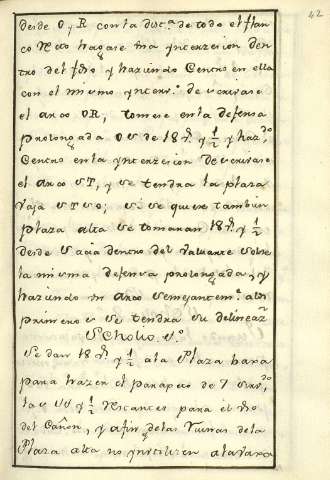 42
desde O y R con la dist.ª de todo el flan
co Reto hagase una yntercecion den
tro del fho y haziendo Centro en ella
con el mismo ynterv.º descrivase
el arco OR, tomese en la defensa
prolongada OS de 18 v.s y 1/2 y haz.do
Centro en la yntercecion descrivase
el arco ST, y se tendra la plaza
vaja STVO; si se quiere tambien
plaza alta se tomaran 18 v.s y 1/2
desde S acia dentro del valuarte sobre
la misma defensa prolongada, y
haziendo un arco semejantem.te al
primero se tendra su delinear.n
Scholio. 5.º
Se dan 18 v.s y 1/2 a la Plaza baxa
para hazer el parapeto de 7 var.s
las y 1/2 Restantes para el
del Cañon, y afin de las Ruinas de la
Plaza alta no ynutilizen a la vaxa